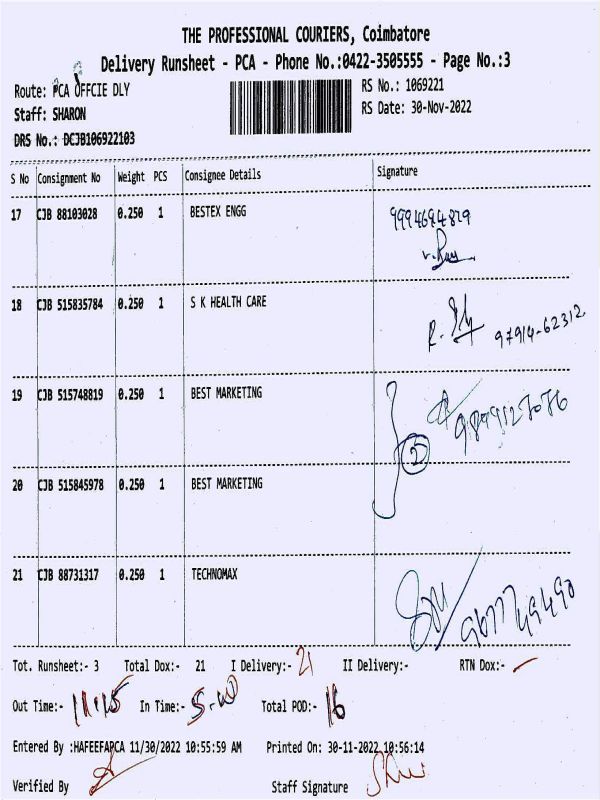 THE PROFESSIONAL COURIERS, Coimbatore
Delivery Runsheet - PCA - Phone No.:0422-3505555 - Page No.:3
Route: PCA OFFCIE DLY
RS No.: 1069221
Staff: SHARON
RS Date: 30-Nov-2022
DRS No.: DCJB106922103
S No Consignment No Weight PCS Consignee Details Signature
17 CJB 88103028 0.250 1 BESTEX ENGG
18 CJB 515835784 0.250 1 S K HEALTH CARE
97914-62312
19 CJB 515748819 0.250 1 BEST MARKETING
2
20 CJB 515845978 0.250 1 BEST MARKETING
21 CJB 88731317 0.250 1 TECHNOMAX
Tot. Runsheet:- 3 Total Dox:- 21 I Delivery:- 21 II Delivery:- RTN Dox:-
Out Time:- 11.15 In Time:- 5.00 Total POD:- 16
Entered By :HAFEEFAPCA 11/30/2022 10:55:59 AM Printed On: 30-11-2022 10:56:14
Verified By Staff Signature